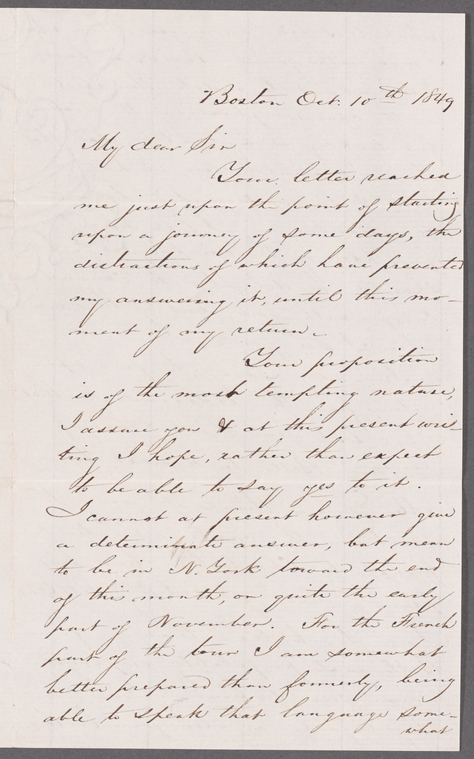 Boston Oct. 10th 1849
My dear Sir
Your letter reached
me just upon the point of starting
upon a journey of some days, the
distractions of which have prevented
my answering it, until this mo-
ment of my return.
Your proposition
is of the most tempting nature,
I assure you & at this present wri-
ting I hope, rather than expect
to be able to say yes to it.
I cannot at present however give
a determinate answer, but mean
to be in N. York toward the end
of this month, or quite the early
part of November. For the French
part of the tour I am somewhat
better prepared than formerly, being
able to speak that language some-
what